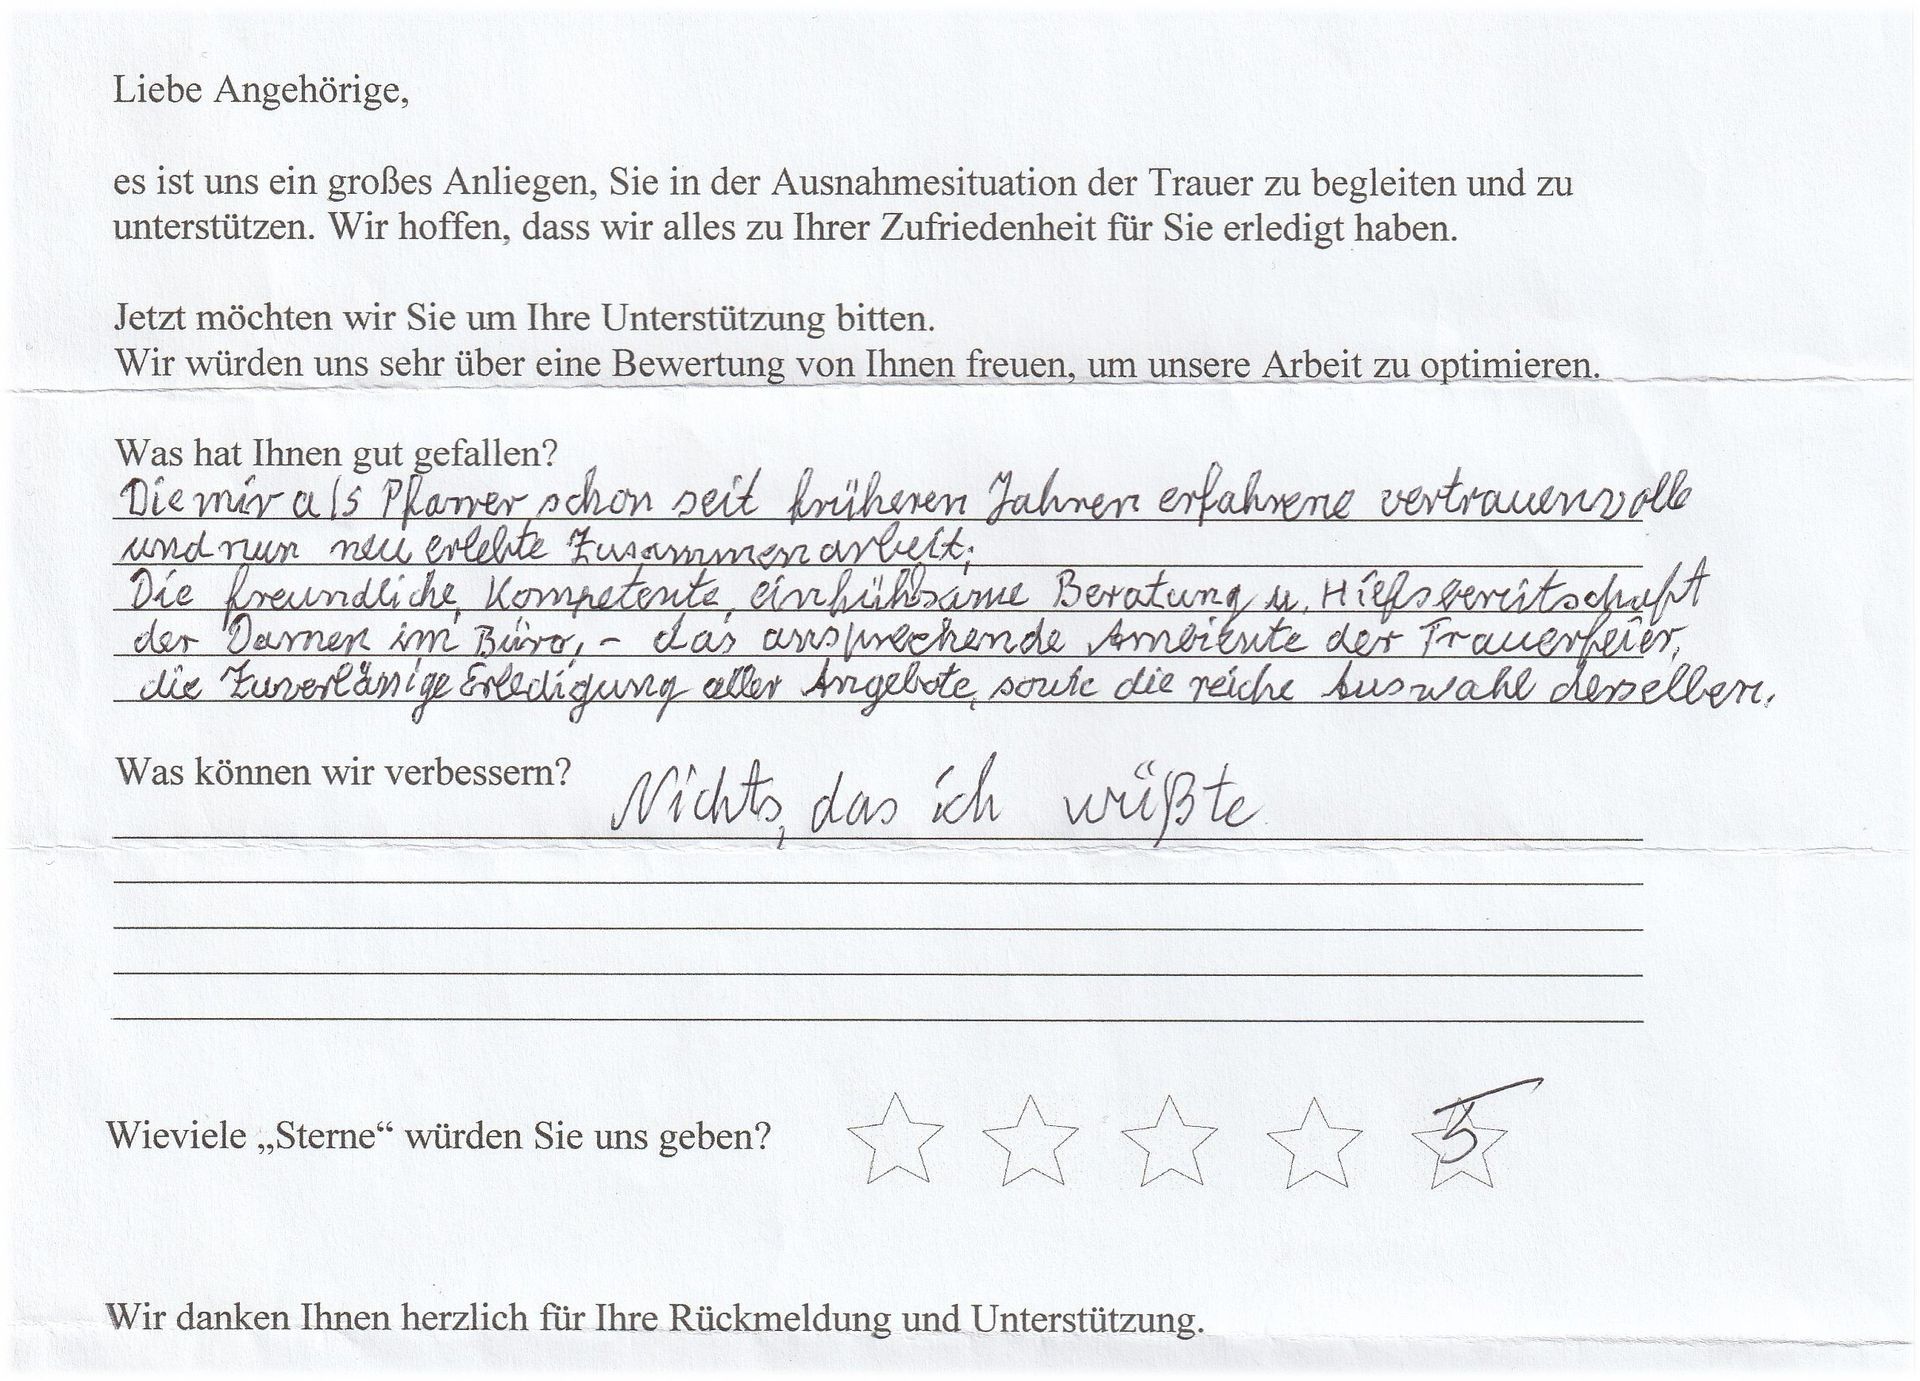 Liebe Angehörige,
es ist uns ein großes Anliegen, Sie in der Ausnahmesituation der Trauer zu begleiten und zu
unterstützen. Wir hoffen, dass wir alles zu Ihrer Zufriedenheit für Sie erledigt haben.
Jetzt möchten wir Sie um Ihre Unterstützung bitten.
Wir würden uns sehr über eine Bewertung von Ihnen freuen, um unsere Arbeit zu optimieren.
Was hat Ihnen gut gefallen?
Die mir als Pfarrer schon seit früheren Jahren erfahrene vertrauensvolle
und nun neu erlebte Zusammenarbeit;
Die freundliche, kompetente, einfühlsame Beratung u. Hilfsbereitschaft
der Damen im Büro, - das ansprechende Ambiente der Trauerfeier,
die zuverlässige Erledigung aller Angebote, sowie die reiche Auswahl derselben.
Was können wir verbessern? Nichts, das ich wüßte
Wieviele „Sterne“ würden Sie uns geben? 5
Wir danken Ihnen herzlich für Ihre Rückmeldung und Unterstützung.